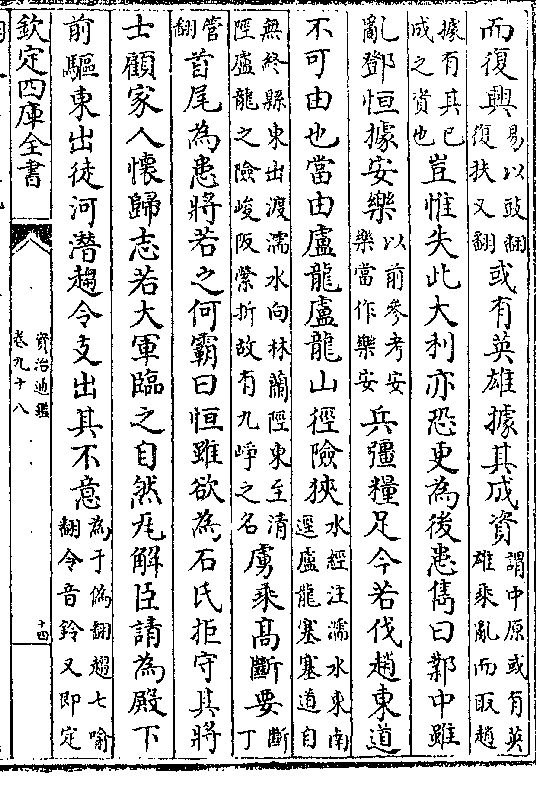 而復興易以豉翻復扶又翻或有英雄據其成資謂中原或有英雄乘亂而取趙
據有其已成之資也豈惟失此大利亦恐更為後患儁曰鄴中雖
亂鄧恒據安樂以前參考安樂當作樂安兵彊糧足今若伐趙東道
不可由也當由盧龍盧龍山徑險狹水經注濡水東南逕盧龍塞塞道自
無終縣東出渡濡水向林蘭陘東至清陘盧龍之險峻阪縈折故有九崢之名虜乘髙斷要斷丁
管翻首尾為患將若之何霸曰恒雖欲為石氏拒守其將
士顧家人懷歸志若大軍臨之自然瓦解臣請為殿下
前驅東出徒河潛趨令支出其不意為于偽翻趨七喻翻令音鈴又即定
欽定四庫全書
資治通鑑
卷九十八
十四